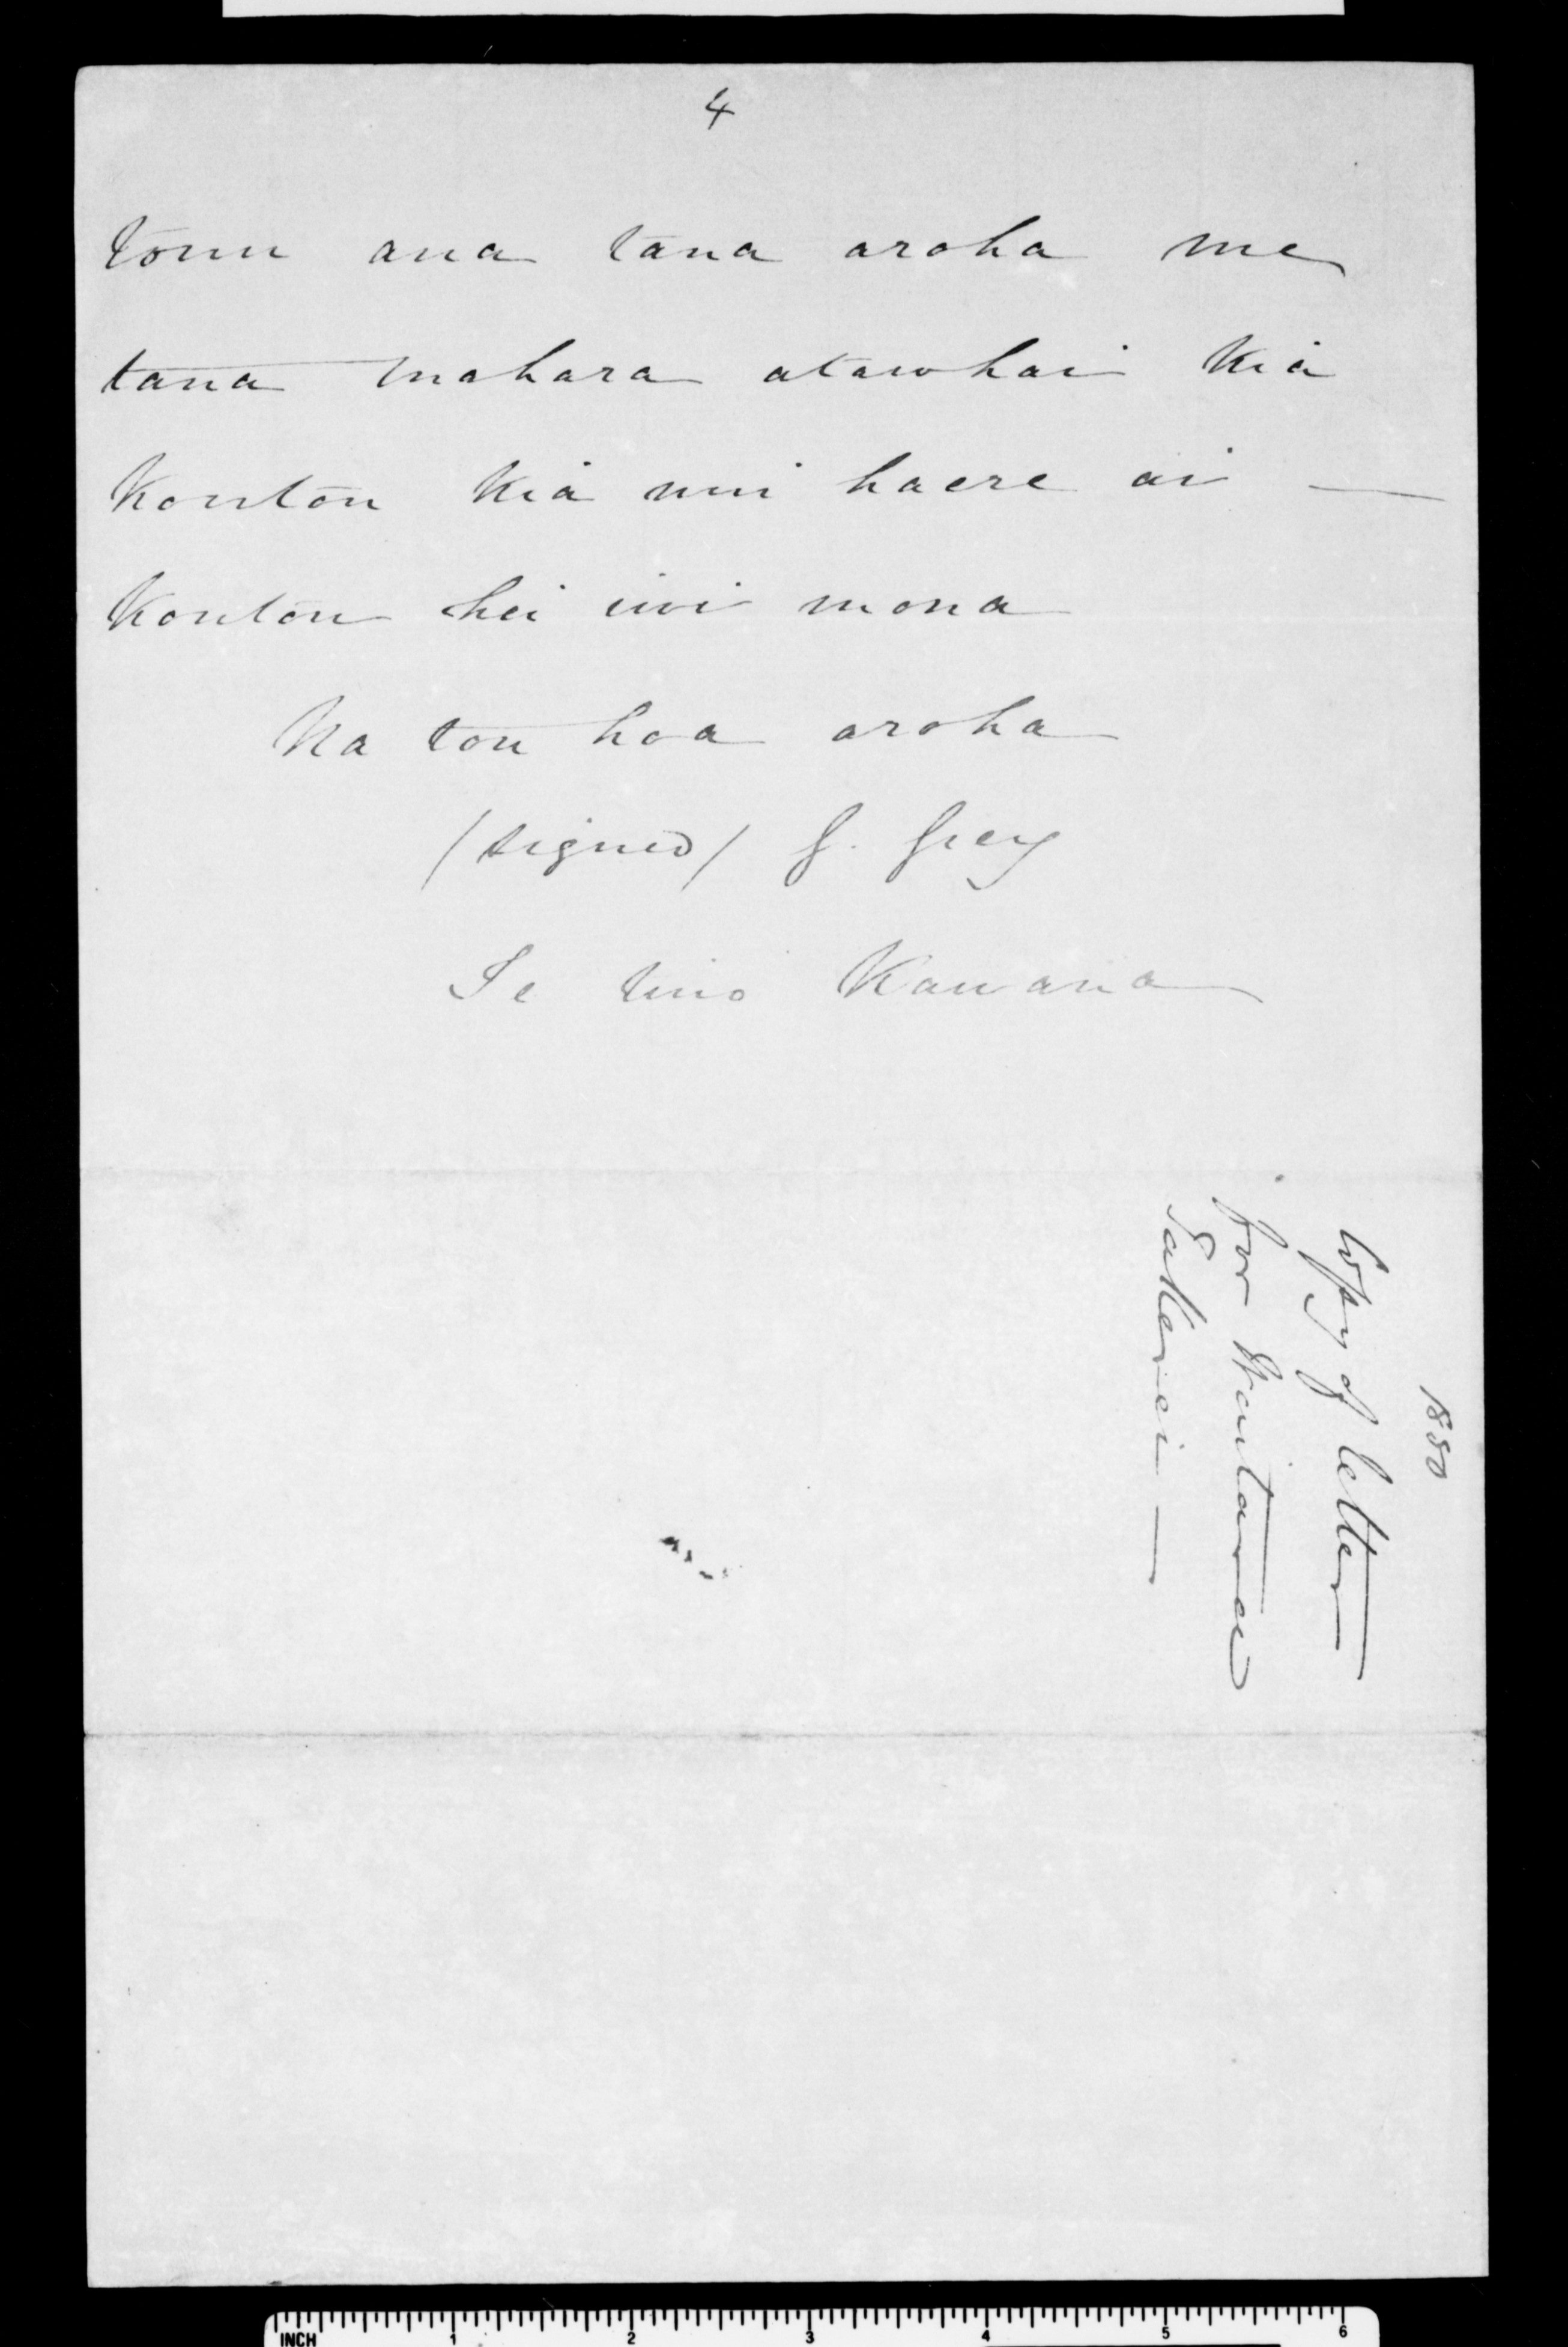 4
tonu ana tana aroha me
tana mahara atawhai kia
Koutou kia nui haere ai —
Koutou hei iwi mona
Na tou hoa aroha
/signed/ G. Grey
Te tino Kawana
1880
Copy of letter
for